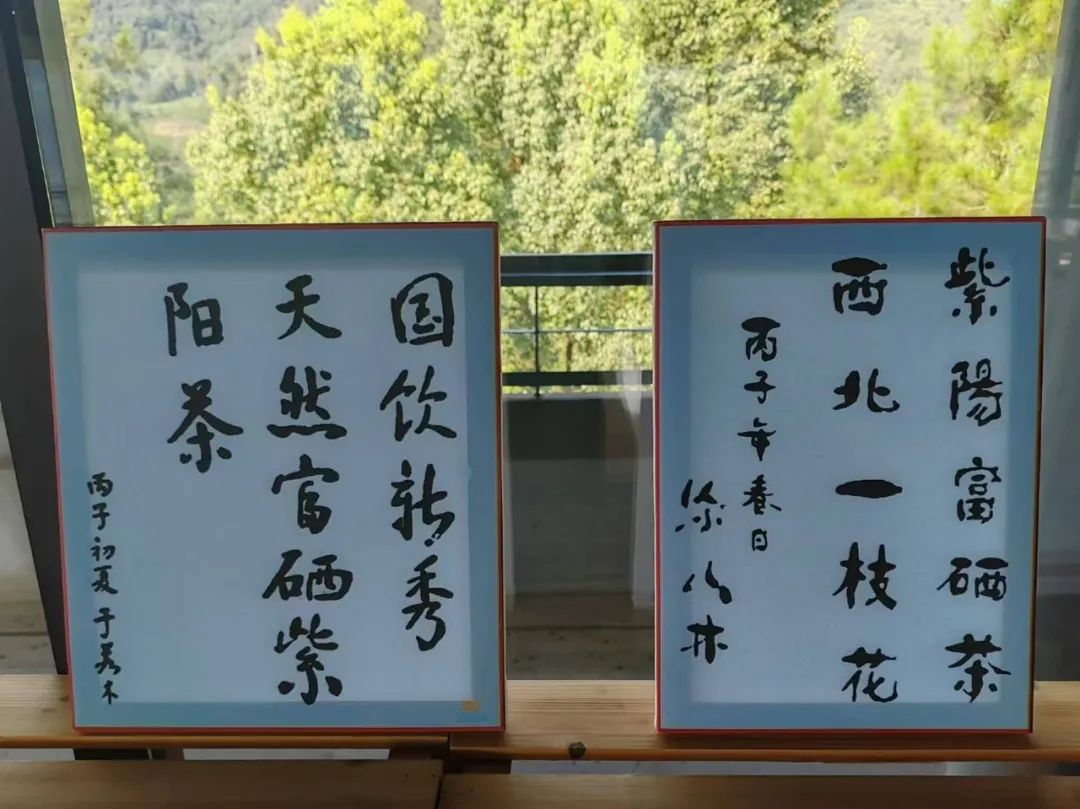 国饮新秀
天然富硒紫
阳茶
丙子初夏 于若木
紫陽富硒茶
西北一枝花
丙子年春日
徐山林